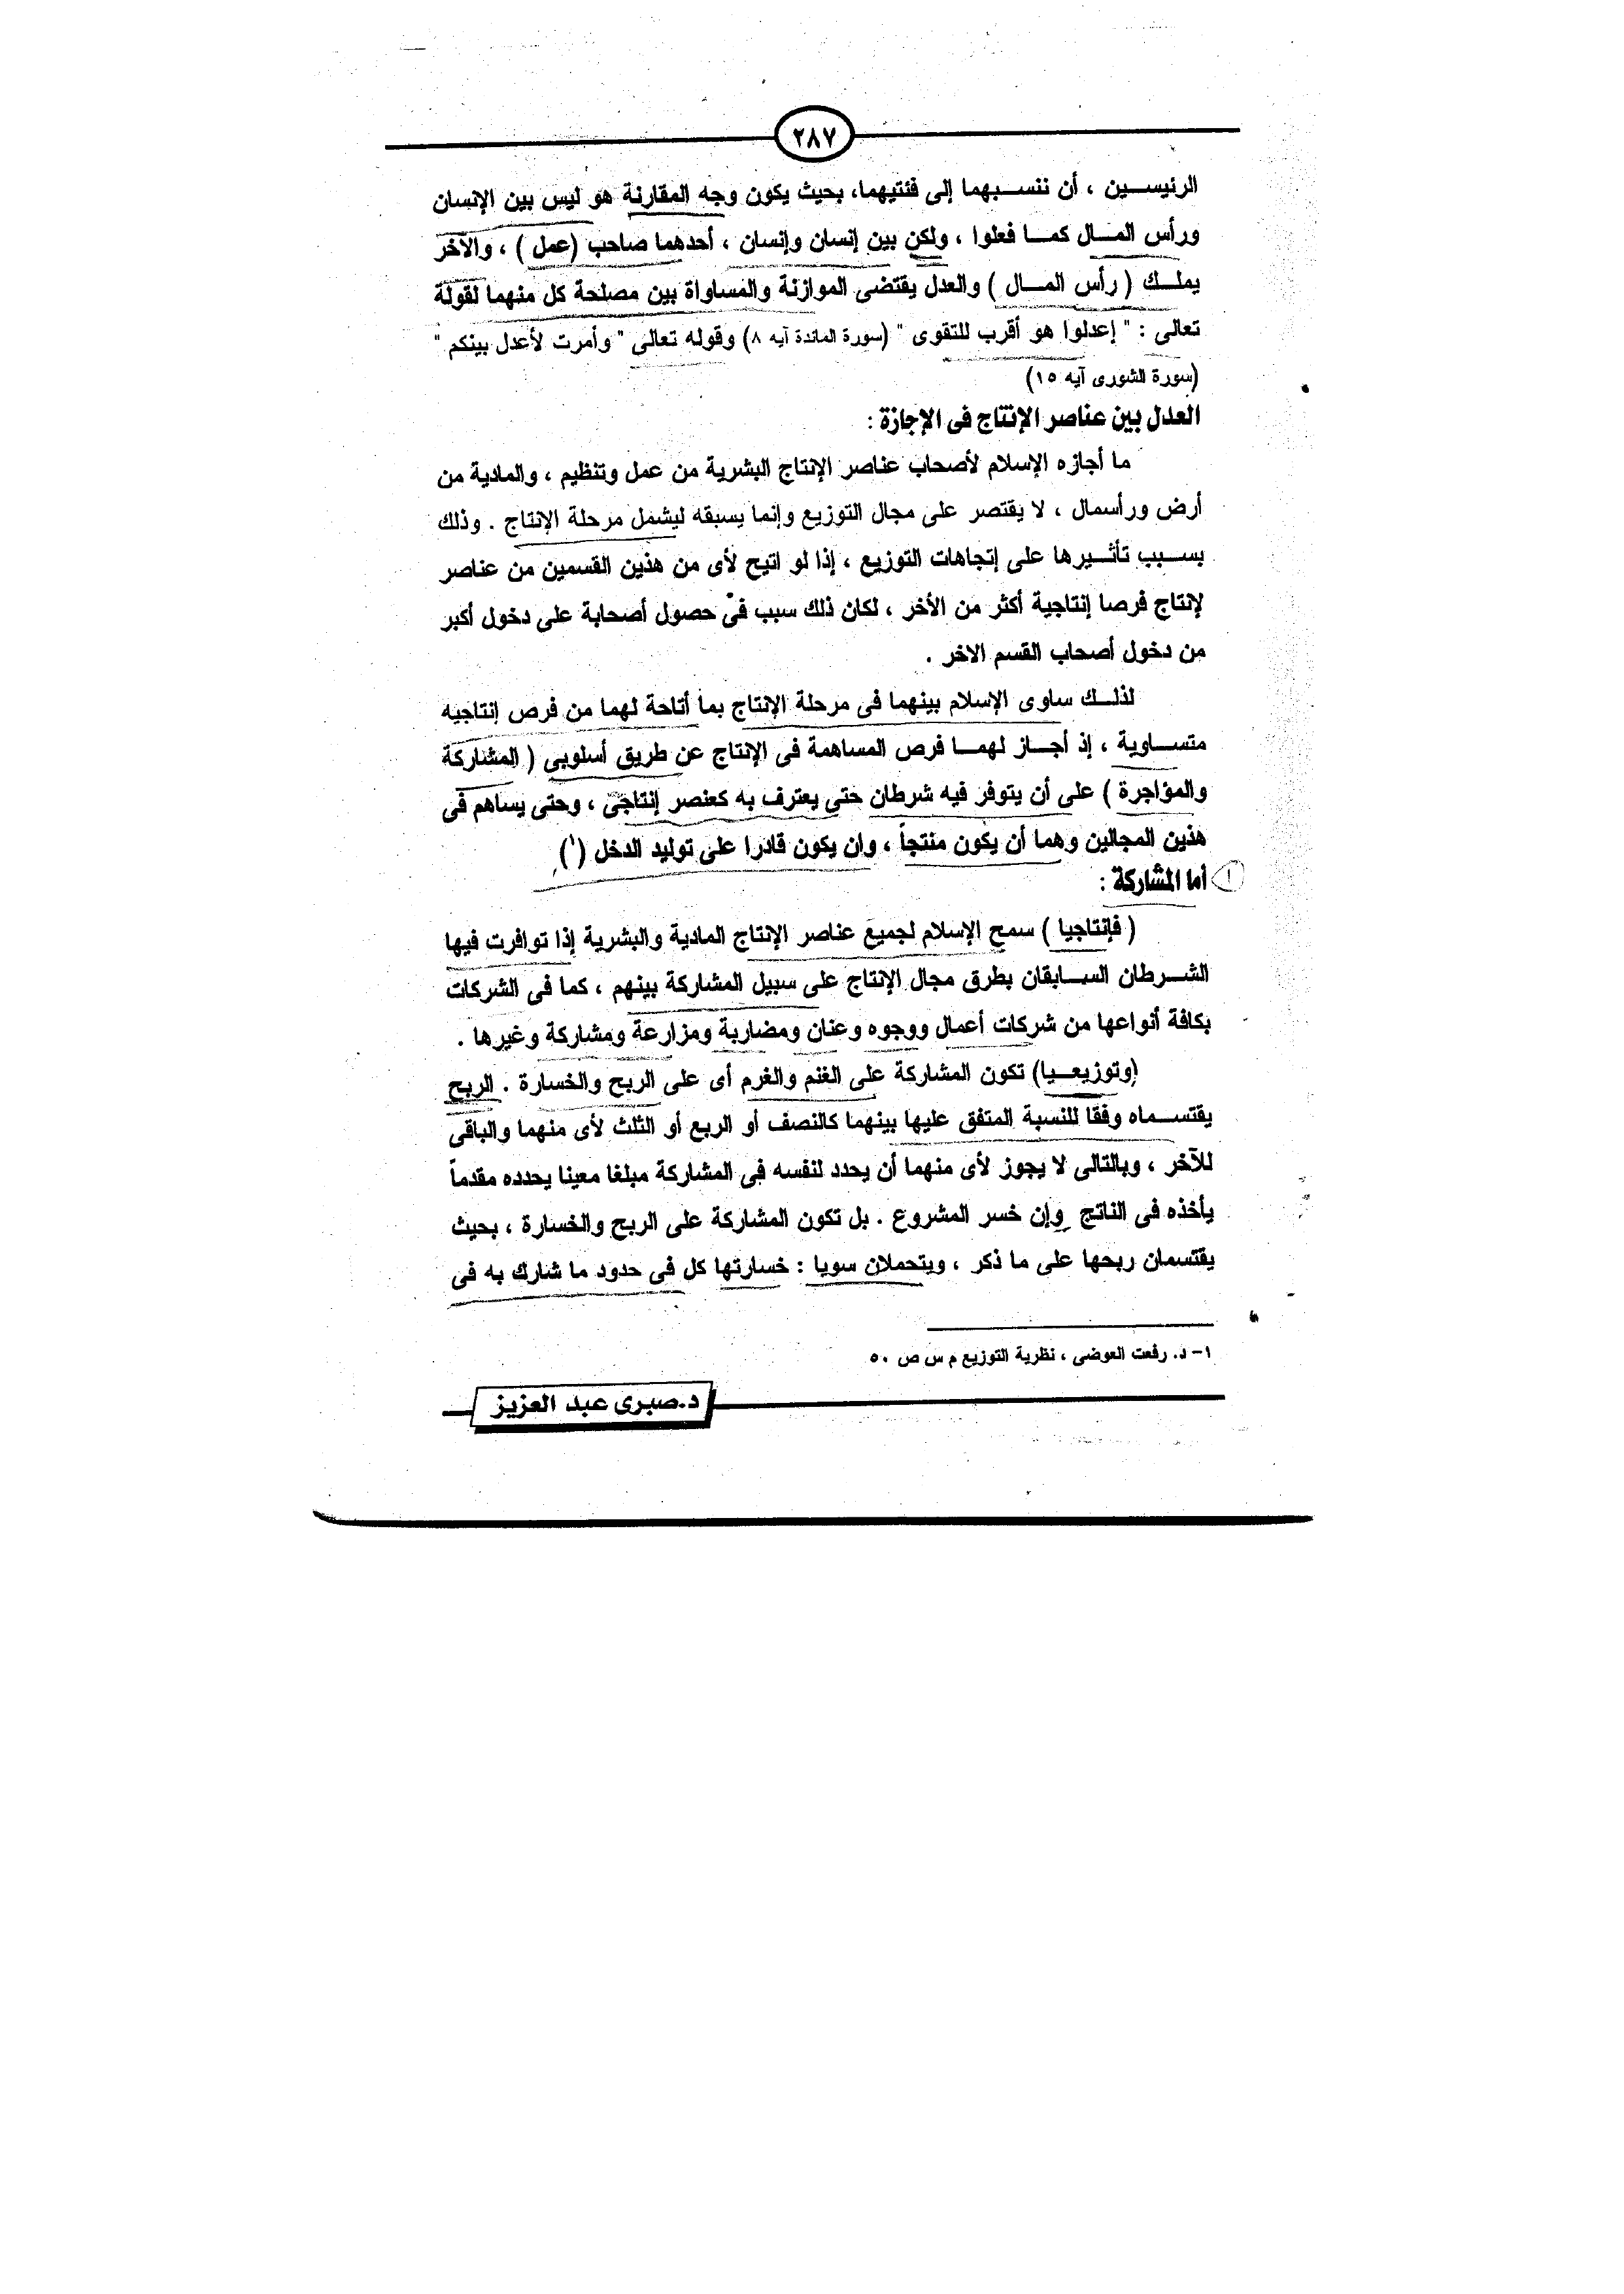 ٢٨٧
الرئيسين ، أن ننسبهما إلى فئتيهما، بحيث يكون وجه المقارنة هو ليس بين الإنسان
ورأس المال كما فعلوا ، ولكن بين إنسان وإنسان ، أحدهما صاحب (عمل ) ، والآخر
يملك ( رأس المال ) والعدل يقتضى الموازنة والمساواة بين مصلحة كل منهما لقولة
تعالى : " إعدلوا هو أقرب للتقوى " (سورة المائدة آيه ٨) وقوله تعالى " وأمرت لأعدل بينكم "
(سورة الشورى آيه ١٥)
العدل بين عناصر الإنتاج فى الإجازة :
ما أجازه الإسلام لأصحاب عناصر الإنتاج البشرية من عمل وتنظيم ، والمادية من
أرض ورأسمال ، لا يقتصر على مجال التوزيع وإنما يسبقه ليشمل مرحلة الإنتاج . وذلك
بسبب تأثيرها على إتجاهات التوزيع ، إذا لو اتيح لأى من هذين القسمين من عناصر
لإنتاج فرصا إنتاجية أكثر من الأخر ، لكان ذلك سبب فى حصول أصحابة على دخول أكبر
من دخول أصحاب القسم الاخر .
لذلك ساوى الإسلام بينهما فى مرحلة الإنتاج بما أتاحة لهما من فرص إنتاجيه
متساوية ، إذ أجاز لهما فرص المساهمة فى الإنتاج عن طريق أسلوبى ( المشاركة
والمؤاجرة ) على أن يتوفر فيه شرطان حتى يعترف به كعنصر إنتاجى ، وحتى يساهم فى
هذين المجالين وهما أن يكون منتجاً ، وان يكون قادرا على توليد الدخل (١)
١ أما المشاركة :
( فإنتاجيا ) سمح الإسلام لجميع عناصر الإنتاج المادية والبشرية إذا توافرت فيها
الشرطان السابقان بطرق مجال الإنتاج على سبيل المشاركة بينهم ، كما فى الشركات
بكافة أنواعها من شركات أعمال ووجوه وعنان ومضاربة ومزارعة ومشاركة وغيرها .
(وتوزيعيا) تكون المشاركة على الغنم والغرم أى على الربح والخسارة . الربح
يقتسماه وفقا للنسبة المتفق عليها بينهما كالنصف أو الربع أو الثلث لأى منهما والباقى
للآخر ، وبالتالى لا يجوز لأى منهما أن يحدد لنفسه فى المشاركة مبلغا معينا يحدده مقدماً
يأخذه فى الناتج وإن خسر المشروع . بل تكون المشاركة على الربح والخسارة ، بحيث
يقتسمان ربحها على ما ذكر ، ويتحملان سويا : خسارتها كل فى حدود ما شارك به فى
١- د. رفعت العوضى ، نظرية التوزيع م س ص ٥٠
د.صبرى عبد العزيز